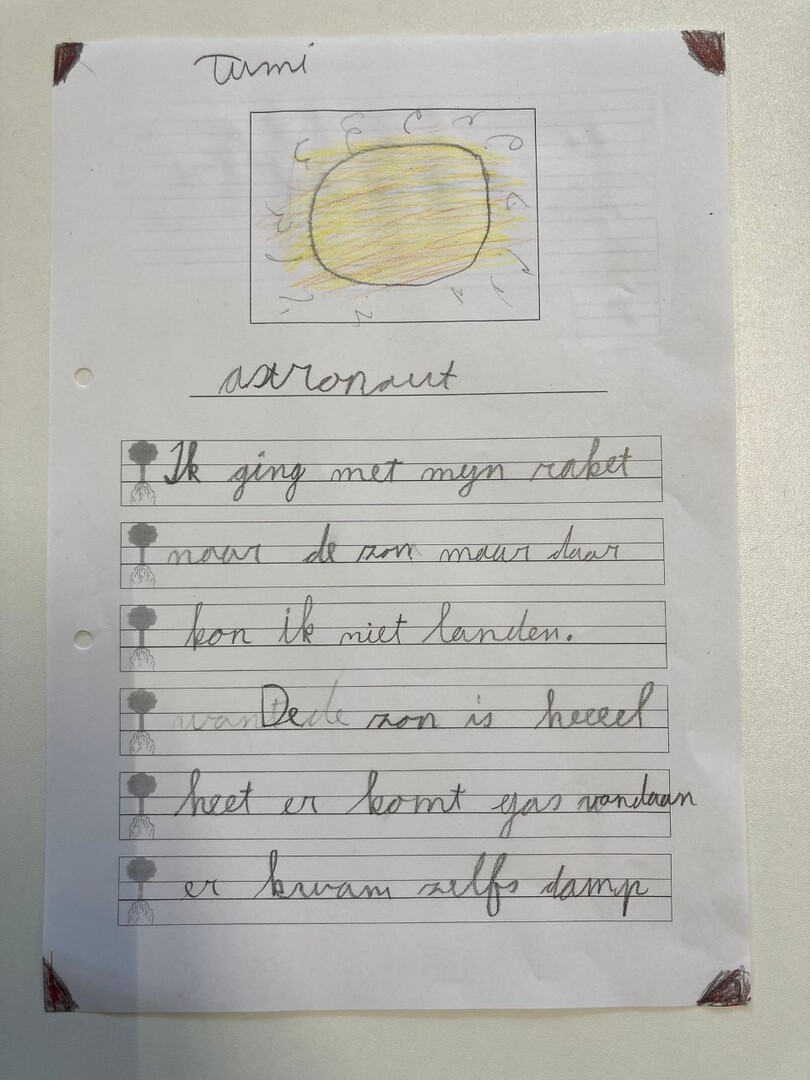 Tumi
astronaut
Ik ging met mijn raket
naar de zon maar daar
kon ik niet landen.
De zon is heeeel
heet er komt gas vandaan
er kwam zelfs damp